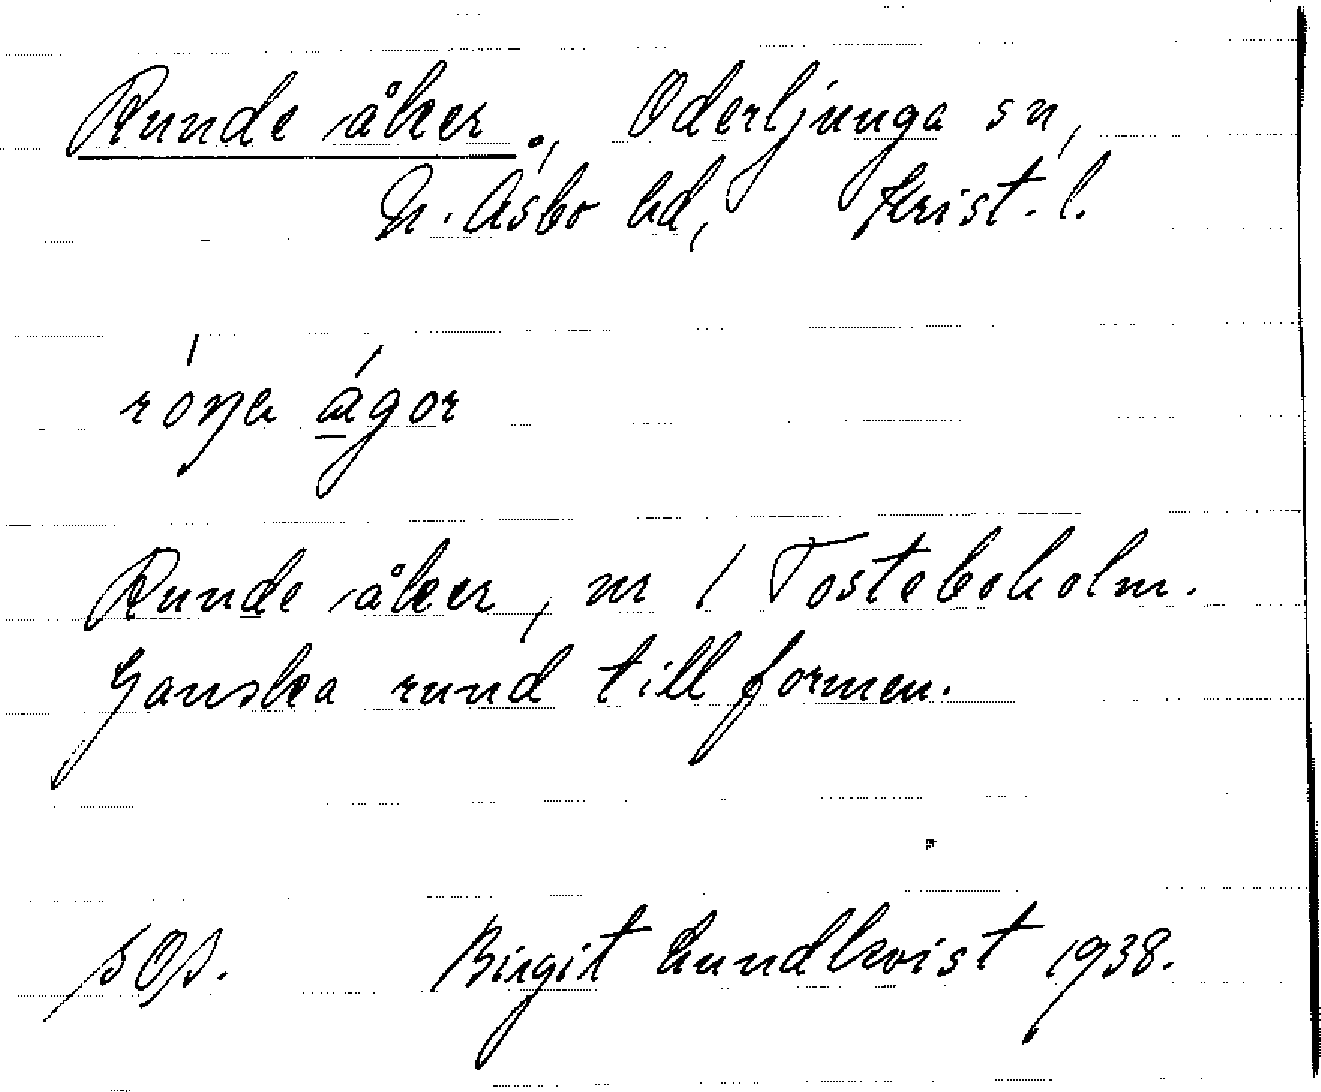 Runde åker., Oderljunga sn,
N. Åsbo hd, Krist. l.
róŋa ágor
Runde åker, m / Tostaboholm.
Ganska rund till formen.
Birgit Lundkvist 1938.